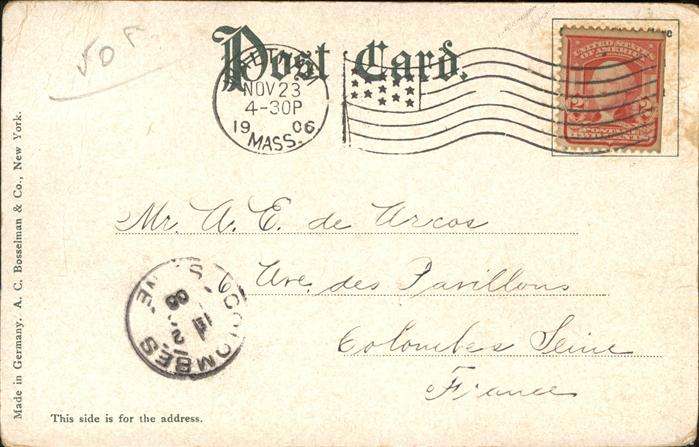 Post Card.
NOV 23
4-30P
1906
MASS.
UNITED STATES OF AMERICA
2 2
Mr. A. E. de Arcos
6 Ave. des Pavillons
Colombes Seine
France
COLOMBES
Made in Germany. A. C. Bosselman & Co., New York.
This side is for the address.